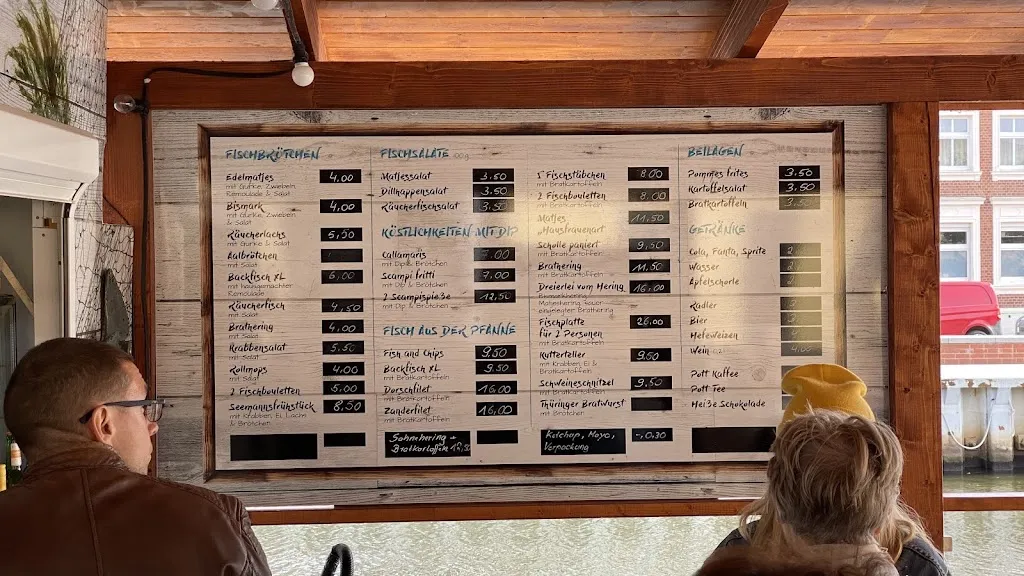 FISCHBRÖTCHEN
Edelmatjes 4,00
mit Gurke, Zwiebeln,
Remoulade & Salat
Bismark 4,00
mit Gurke, Zwiebeln
& Salat
Räucherlachs 5,50
mit Gurke & Salat
Aalbrötchen
mit Salat
Backfisch XL 6,00
mit hausgemachter
Remoulade
Räucherfisch 4,50
mit Salat
Brathering 4,00
mit Salat
Krabbensalat 5,50
mit Salat
Rollmops 4,00
mit Salat
2 Fischbouletten 5,00
Seemannsfrühstück 8,50
mit Krabben, Ei, Lachs
& Brötchen
FISCHSALATE 100g
Matjessalat 3.50
Dillhappensalat 3.50
Räucherfischsalat 3.50
KÖSTLICHKEITEN MIT DIP
Callamaris 7.00
mit Dip & Brötchen
Scampi fritti 7.00
mit Dip & Brötchen
2 Scampispieße 12,50
mit Dip & Brötchen
FISCH AUS DER PFANNE
Fish and Chips 9.50
Backfisch XL 9.50
mit Bratkartoffeln
Dorschfilet 16.00
mit Bratkartoffeln
Zanderfilet 16,00
mit Bratkartoffeln
Sahnehering +
Bratkartoffeln
5 Fischstäbchen 8.00
mit Bratkartoffeln
2 Fischbouletten 8.00
mit Bratkartoffeln
Matjes 11,50
"Hausfrauenart"
Scholle paniert 9,50
mit Bratkartoffeln
Brathering 11,50
mit Bratkartoffeln
Dreierlei vom Hering 16.00
Bismarkhering,
Matjeshering, sauer
eingelegter Brathering
Fischplatte 26.00
für 2 Personen
mit Bratkartoffeln
Kutterteller 9.50
mit Krabben, Ei &
Bratkartoffeln
Schweineschnitzel 9,50
mit Bratkartoffeln
Thüringer Bratwurst
mit Brötchen
Ketchup, Mayo, -,0,30
Verpackung
BEILAGEN
Pommes frites 3.50
Kartoffelsalat 3,50
Bratkartoffeln 3.50
GETRÄNKE
Cola, Fanta, Sprite
Wasser
Apfelschorle
Radler
Bier
Hefeweizen
Wein 0,2 4,00
Pott Kaffee
Pott Tee
Heiße Schokolade